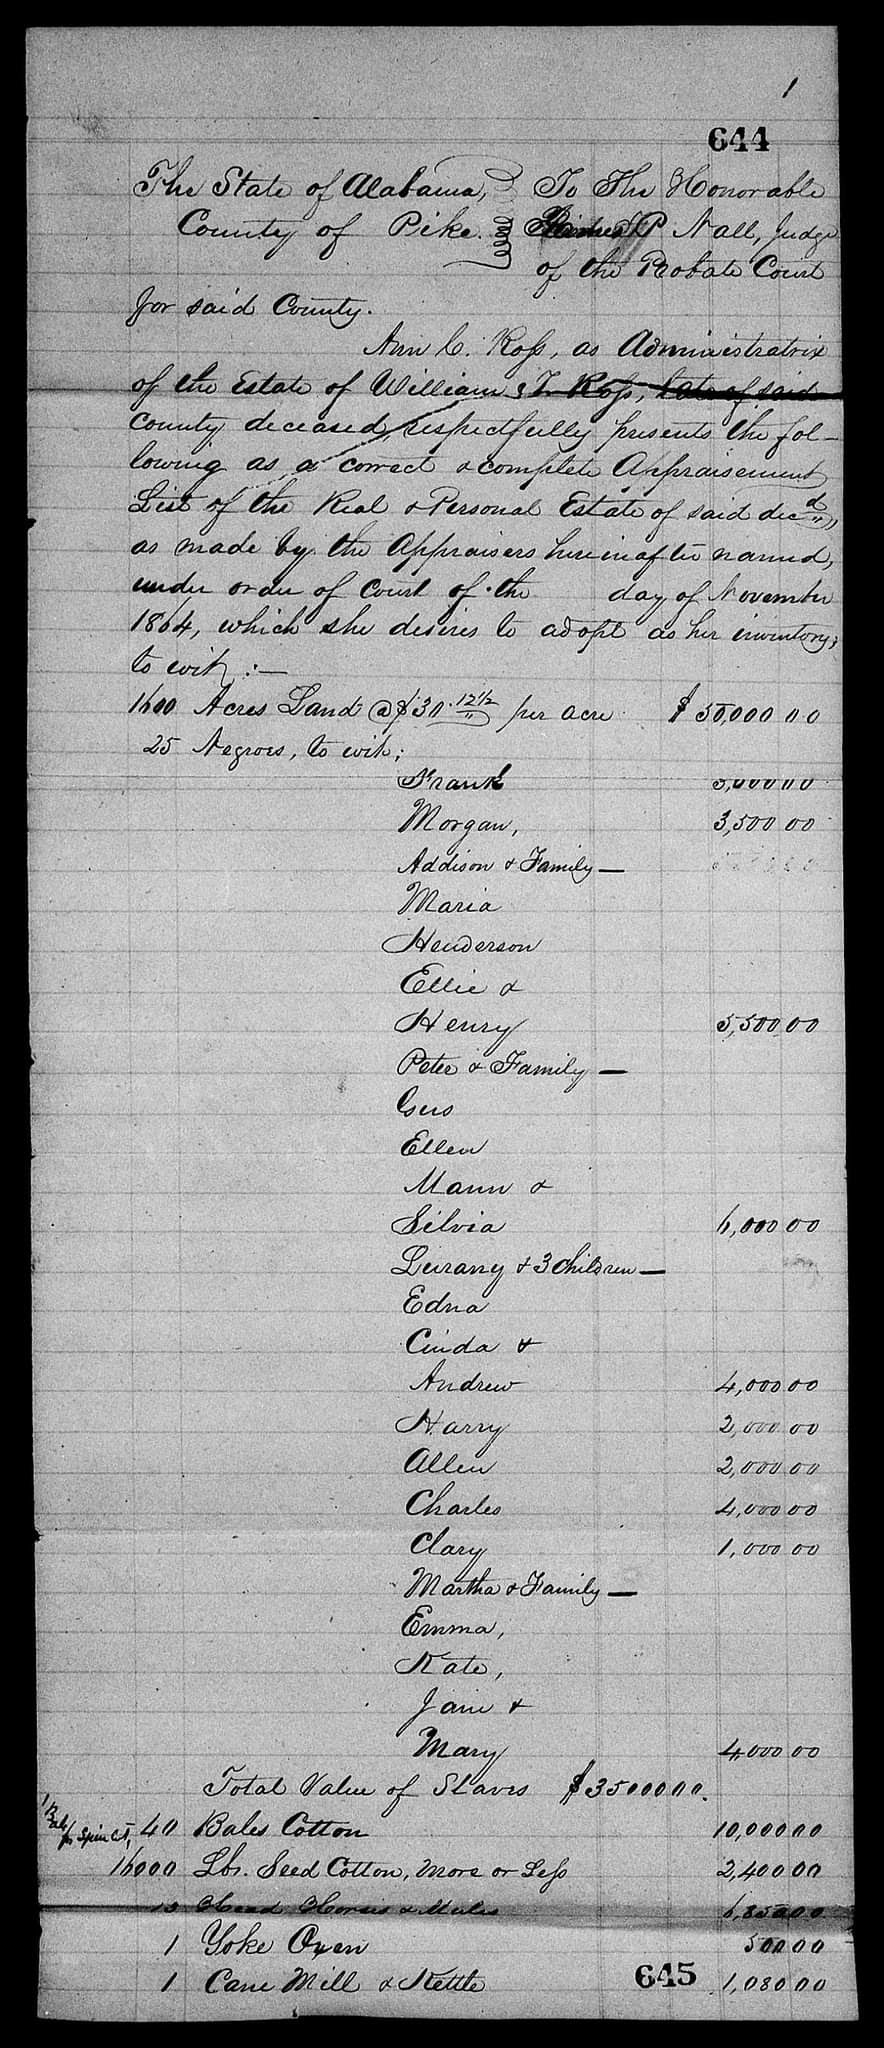 1
644
The State of Alabama, To The Honorable
County of Pike. P Nall, Judge
of the Probate Court
for said County.
Ann C. Ross, as Administratrix
of the Estate of William J. Ross, late of said
county deceased, respectfully presents the fol-
lowing as a correct & complete Appraisement
List of the Real & Personal Estate of said decd,
as made by the Appraisers hereinafter named,
under order of Court of the day of November
1864, which she desires to adopt as her inventory;
to wit:—
1600 Acres Land @ $30.12½ per acre $50,000 00
25 Negroes, to wit;
Frank 3,000 00
Morgan, 3,500 00
Addison & Family —
Maria
Henderson
Ellie &
Henry 5,500,00
Peter & Family —
Gus
Ellen
Mann &
Silvia 6,000 00
Leurany & 3 Children —
Edna
Cinda &
Andrew 4,000 00
Harry 2,000 00
Allen 2,000 00
Charles 4,000 00
Clary 1,000 00
Martha & Family —
Emma,
Kate,
Jane &
Mary 4,000 00
Total Value of Slaves $35000 00.
40 Bales Cotton 10,000 00
16000 Lbs. Seed Cotton, More or Less 2,400 00
Head Horses & Mules 6,850 00
1 Yoke Oxen 500 00
1 Cane Mill & Kettle 1,080 00
645